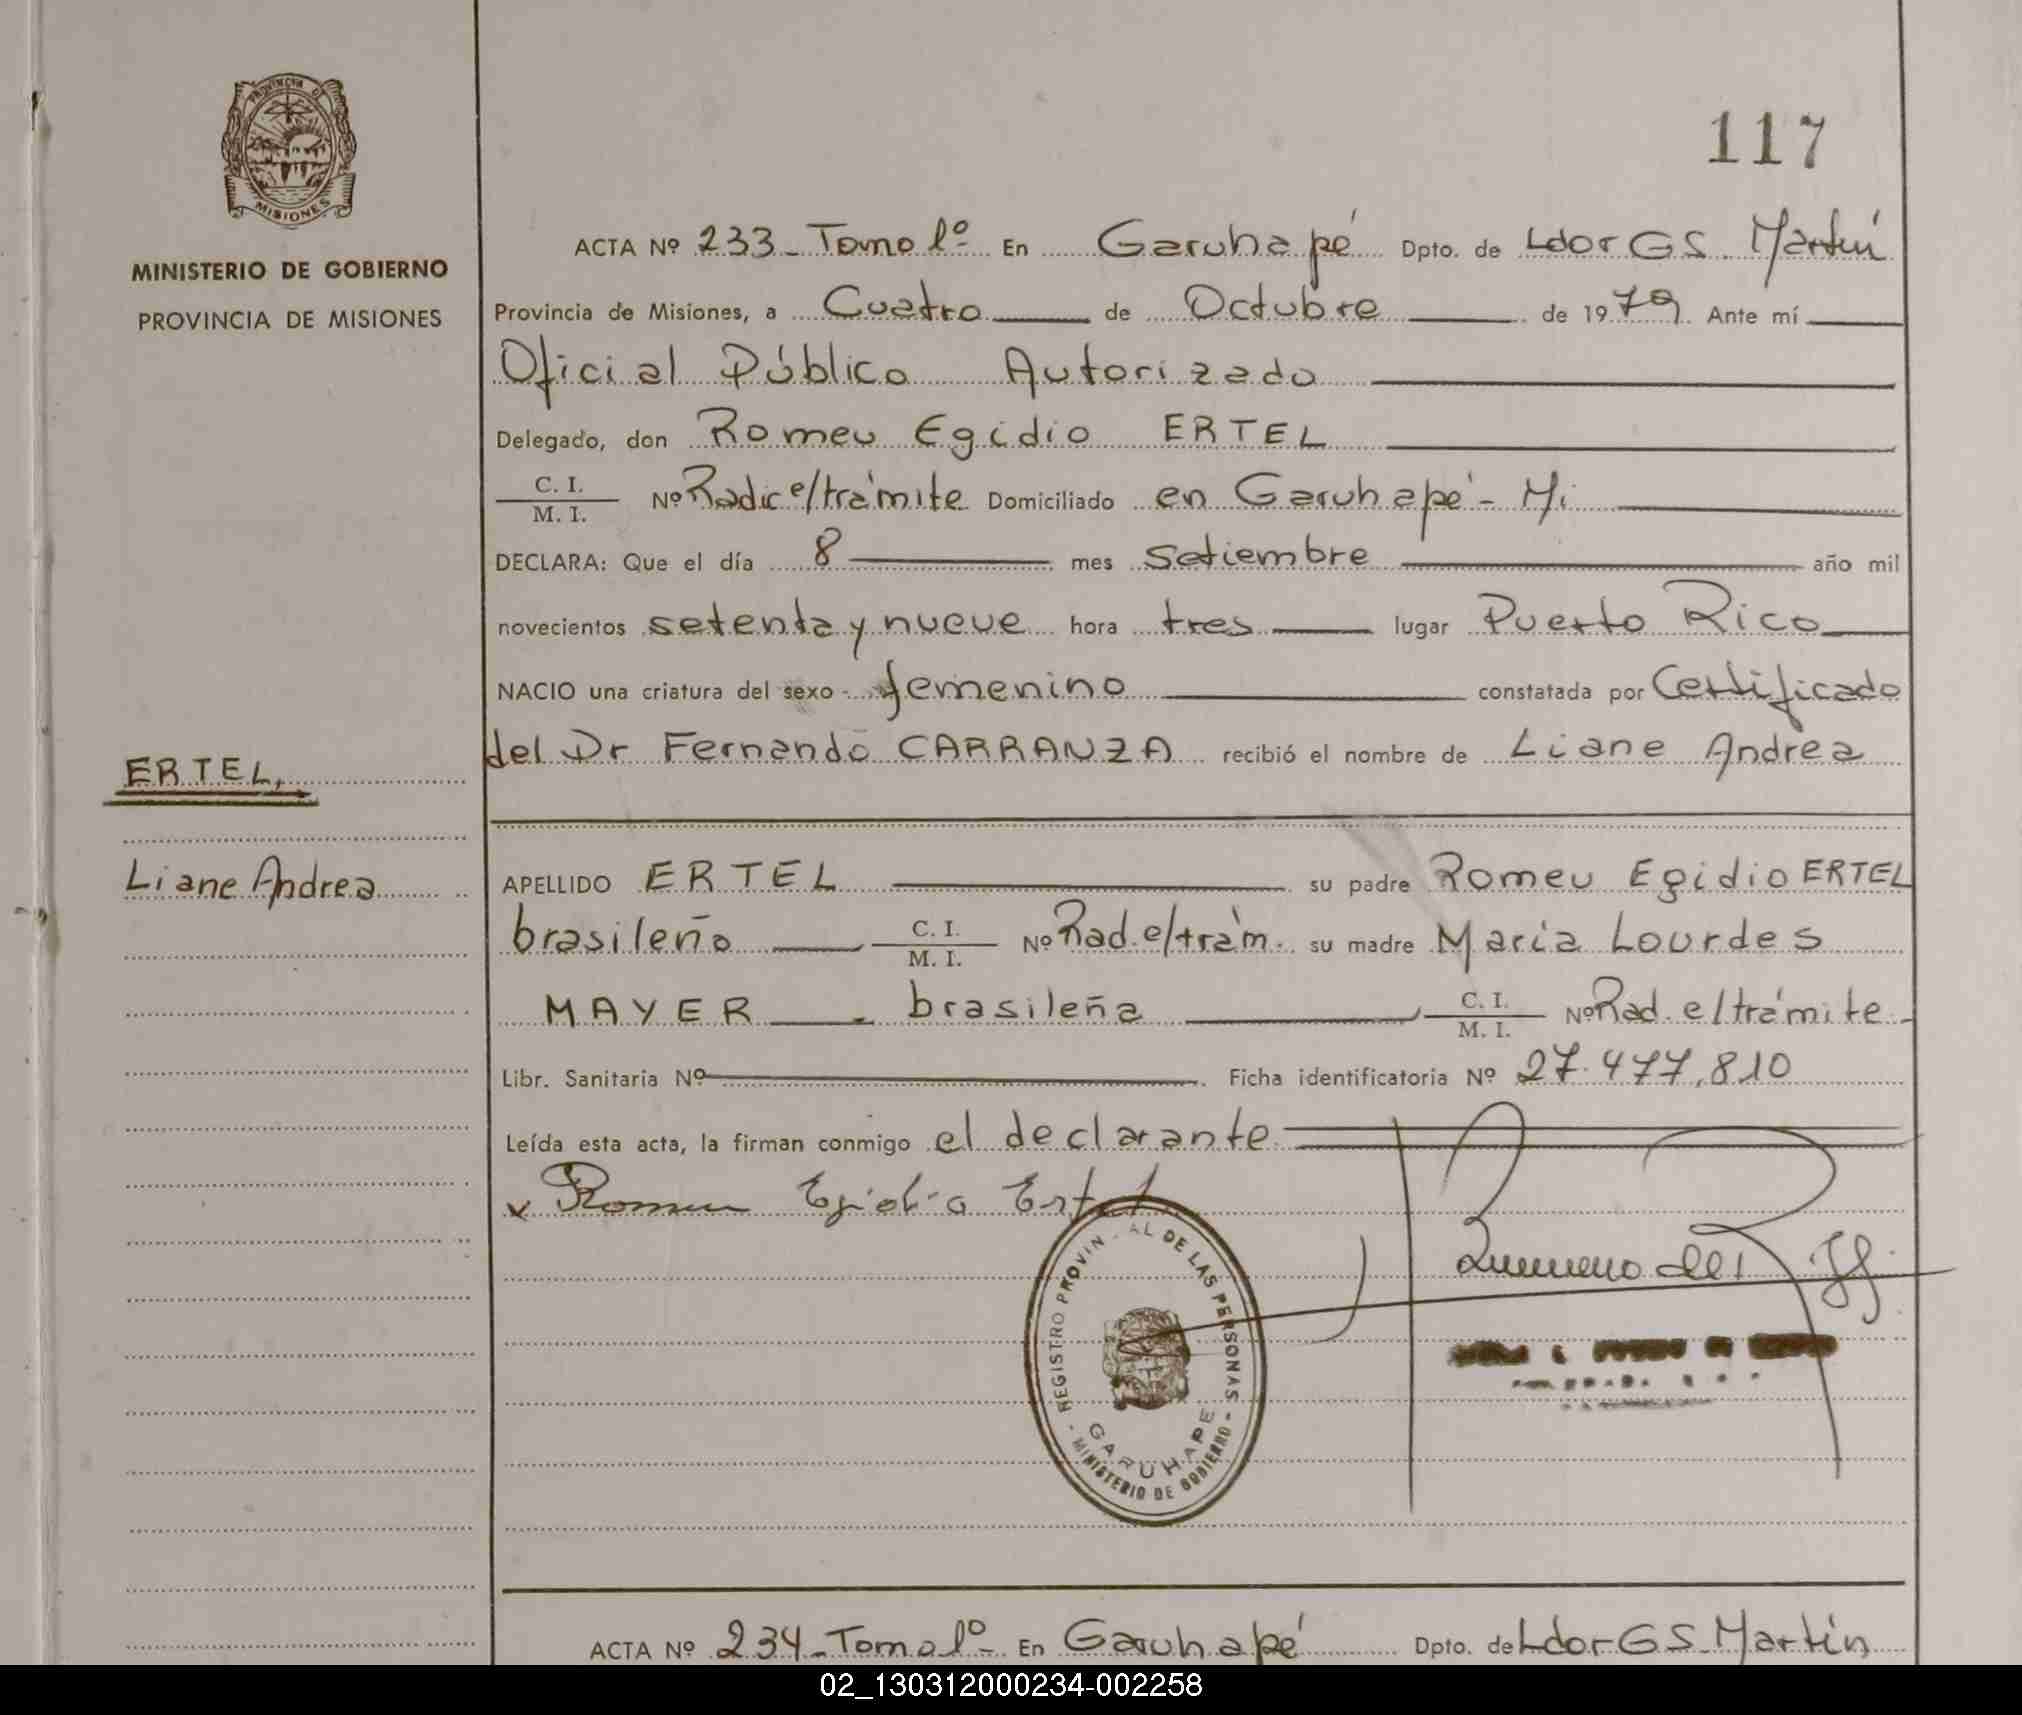 PROVINCIA D
MISIONES
MINISTERIO DE GOBIERNO
PROVINCIA DE MISIONES
117
ACTA Nº 233 - Tomo 1º- En Garuhapé Dpto. de Ldor G S. Martín
Provincia de Misiones, a Cuatro de Octubre de 1979. Ante mí
Oficial Público Autorizado
Delegado, don Romeu Egidio ERTEL
C. I.
M. I. Nº Radic e/trámite Domiciliado en Garuhapé - Mi
DECLARA: Que el día 8 mes Setiembre año mil
novecientos setenta y nueve hora tres lugar Puerto Rico
NACIO una criatura del sexo femenino constatada por Certificado
del Dr Fernando CARRANZA recibió el nombre de Liane Andrea
ERTEL,
Liane Andrea
APELLIDO ERTEL su padre Romeu Egidio ERTEL
brasileño C. I. M. I. Nº Rad. e/trám. su madre Maria Lourdes
MAYER - brasileña C. I. M. I. Nº Rad. e/trámite -
Libr. Sanitaria Nº Ficha identificatoria Nº 27.477.810
Leída esta acta, la firman conmigo el declarante
x Romeu Egidio Ertel
REGISTRO PROVIN AL DE LAS PERSONAS
GARUHAPE
- MINISTERIO DE GOBIERNO -
ACTA Nº 234 - Tomo 1º- En Garuhapé Dpto. de Ldor G S. Martín
02_130312000234-002258